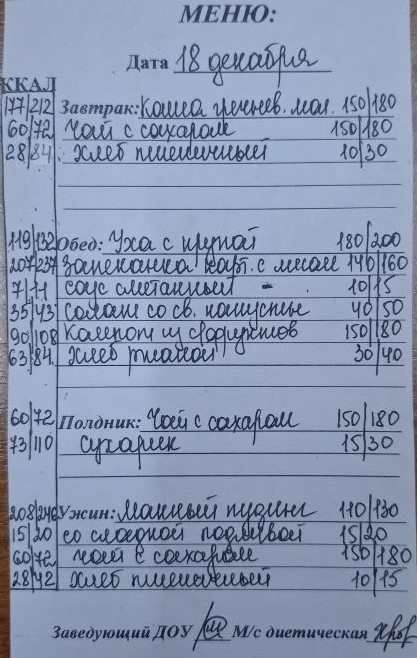 МЕНЮ:
Дата 18 декабря
ККАЛ
177/212 Завтрак: Каша гречнев. мол. 150/180
60/72 Чай с сахаром 150/180
28/84 Хлеб пшеничный 10/30
119/132 Обед: Уха с крупой 180/200
207/237 Запеканка карт. с мясом 140/160
7/11 соус сметанный - 10/15
35/43 Салат со св. капусты 40/50
90/108 Компот из с/фруктов 150/180
63/84 Хлеб ржаной 30/40
60/72 Полдник: Чай с сахаром 150/180
73/110 Сухарик 15/30
208/246 Ужин: Манный пудинг 110/130
15/20 со сладкой подливой 15/20
60/72 чай с сахаром 150/180
28/42 Хлеб пшеничный 10/15
Заведующий ДОУ М/с диетическая